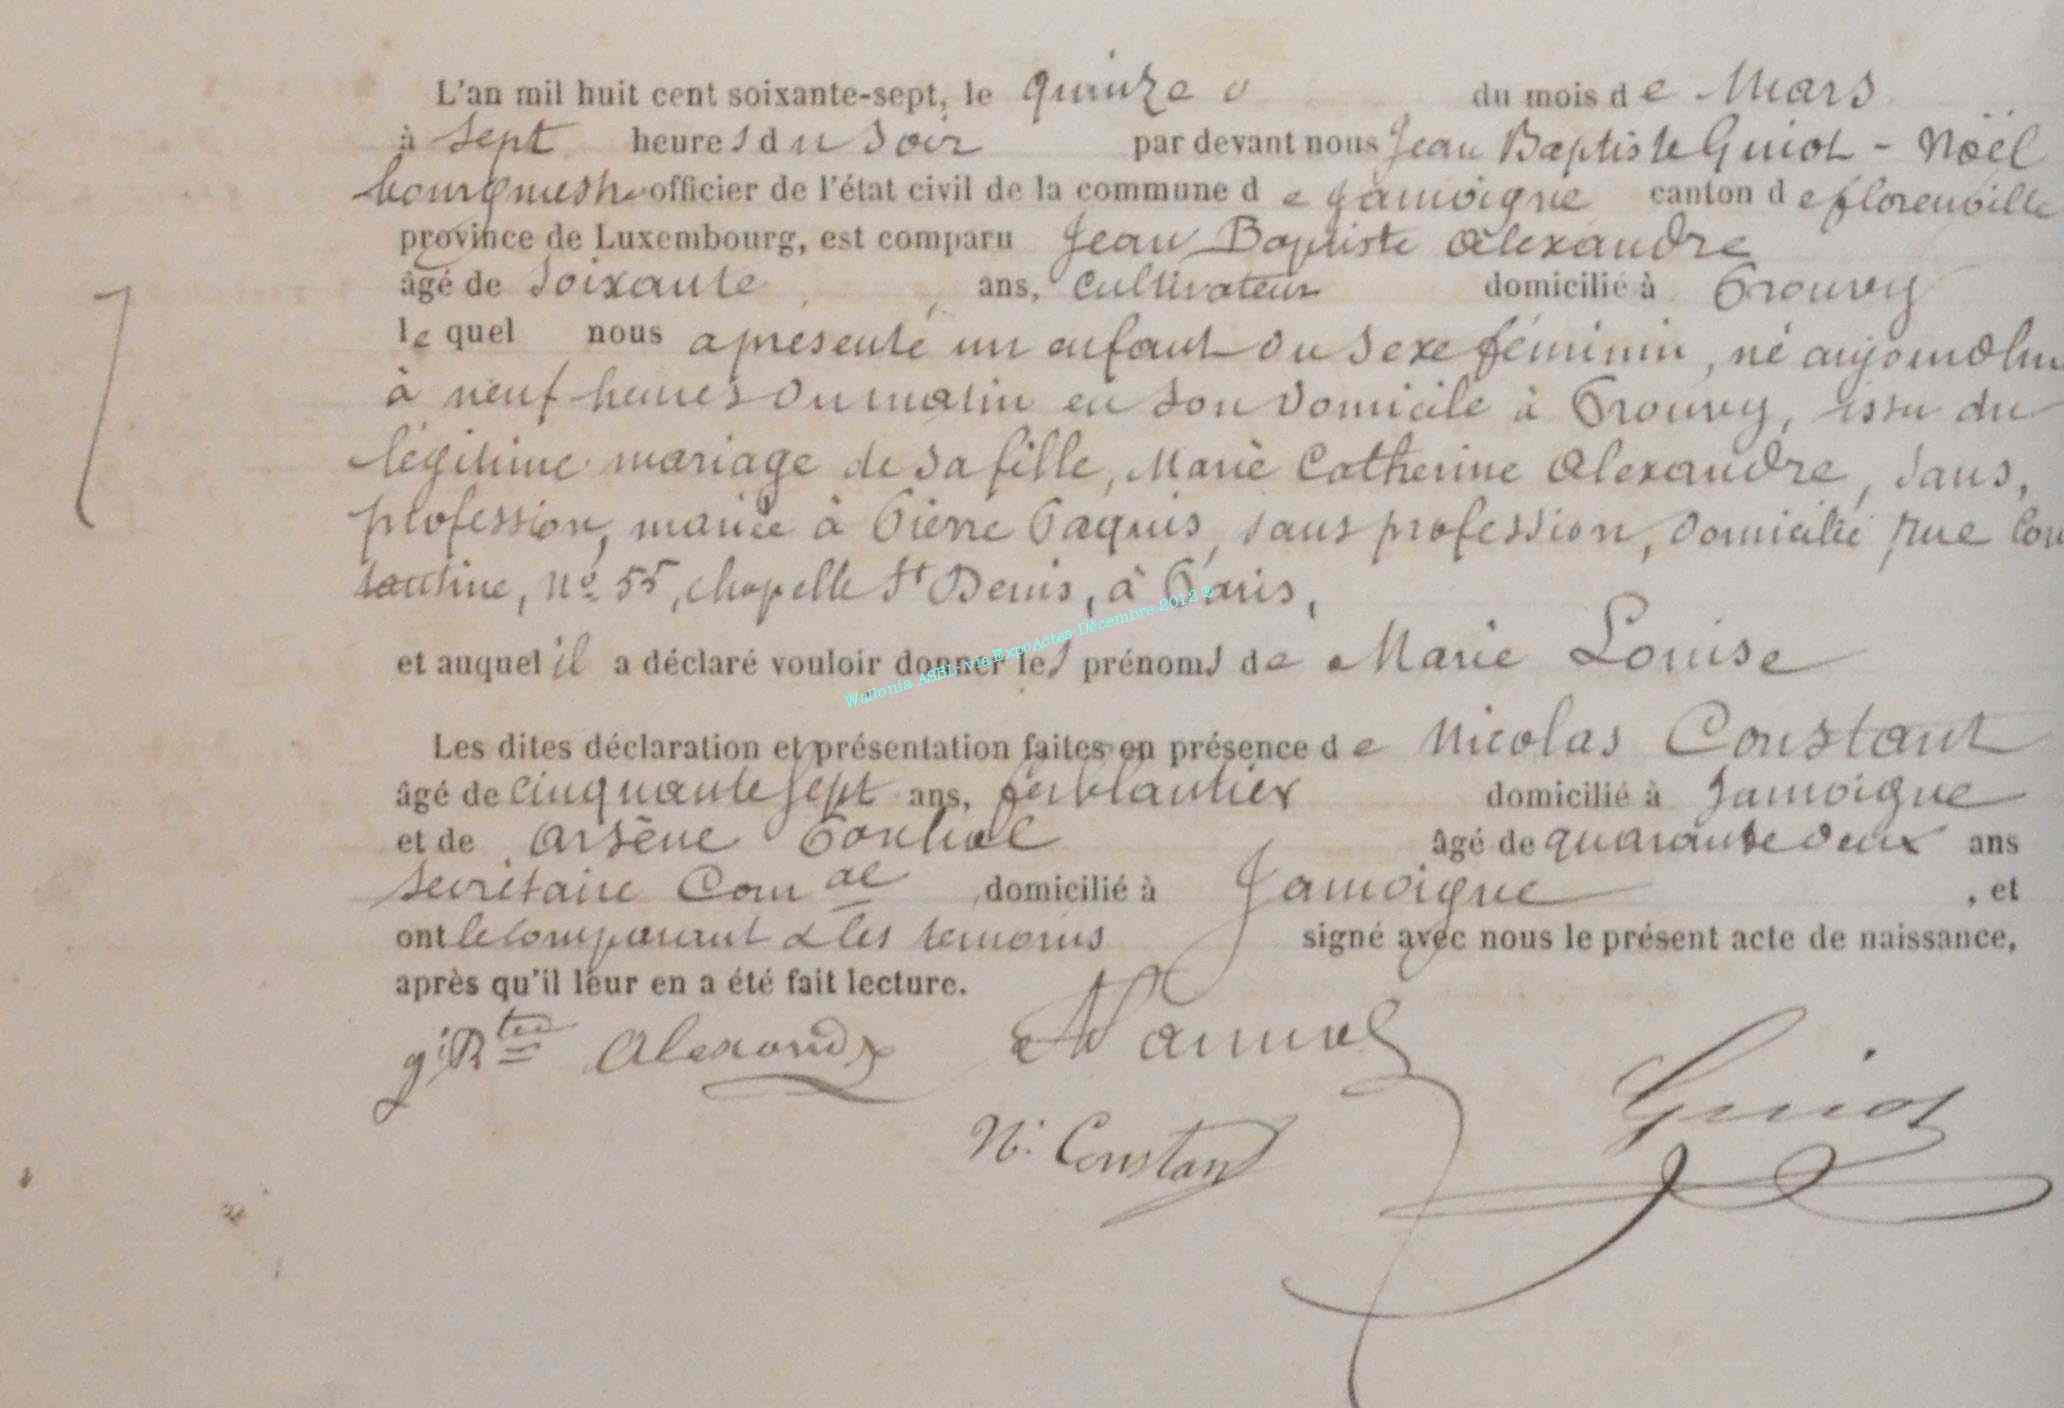 L'an mil huit cent soixante-sept, le quinze du mois de Mars
à sept heures du soir par devant nous Jean Baptiste Guiot - Noël
bourgmestre officier de l'état civil de la commune de Jamoigne canton de florenville
province de Luxembourg, est comparu Jean Baptiste Alexandre
âgé de soixante ans, cultivateur domicilié à Prouvy
lequel nous a présenté un enfant du sexe féminin, né aujourd'hui
à neuf heures du matin en son domicile à Prouvy, issu du
légitime mariage de sa fille, Marie Catherine Alexandre, sans,
profession, mariée à Pierre Paquis, sans profession, domicilié rue Con
stantine, No 55, chapelle St Denis, à Paris,
et auquel il a déclaré vouloir donner les prénoms de Marie Louise
Wallonia ASBL via ExpoActes Décembre 2012 ©
Les dites déclaration et présentation faites en présence de Nicolas Constant
âgé de cinquante sept ans, ferblantier domicilié à Jamoigne
et de Arsène âgé de quarante deux ans
secrétaire Comal domicilié à Jamoigne, et
ont le comparant & les temoins signé avec nous le présent acte de naissance,
après qu'il leur en a été fait lecture.
Alexandre
N. Constant
Guiot